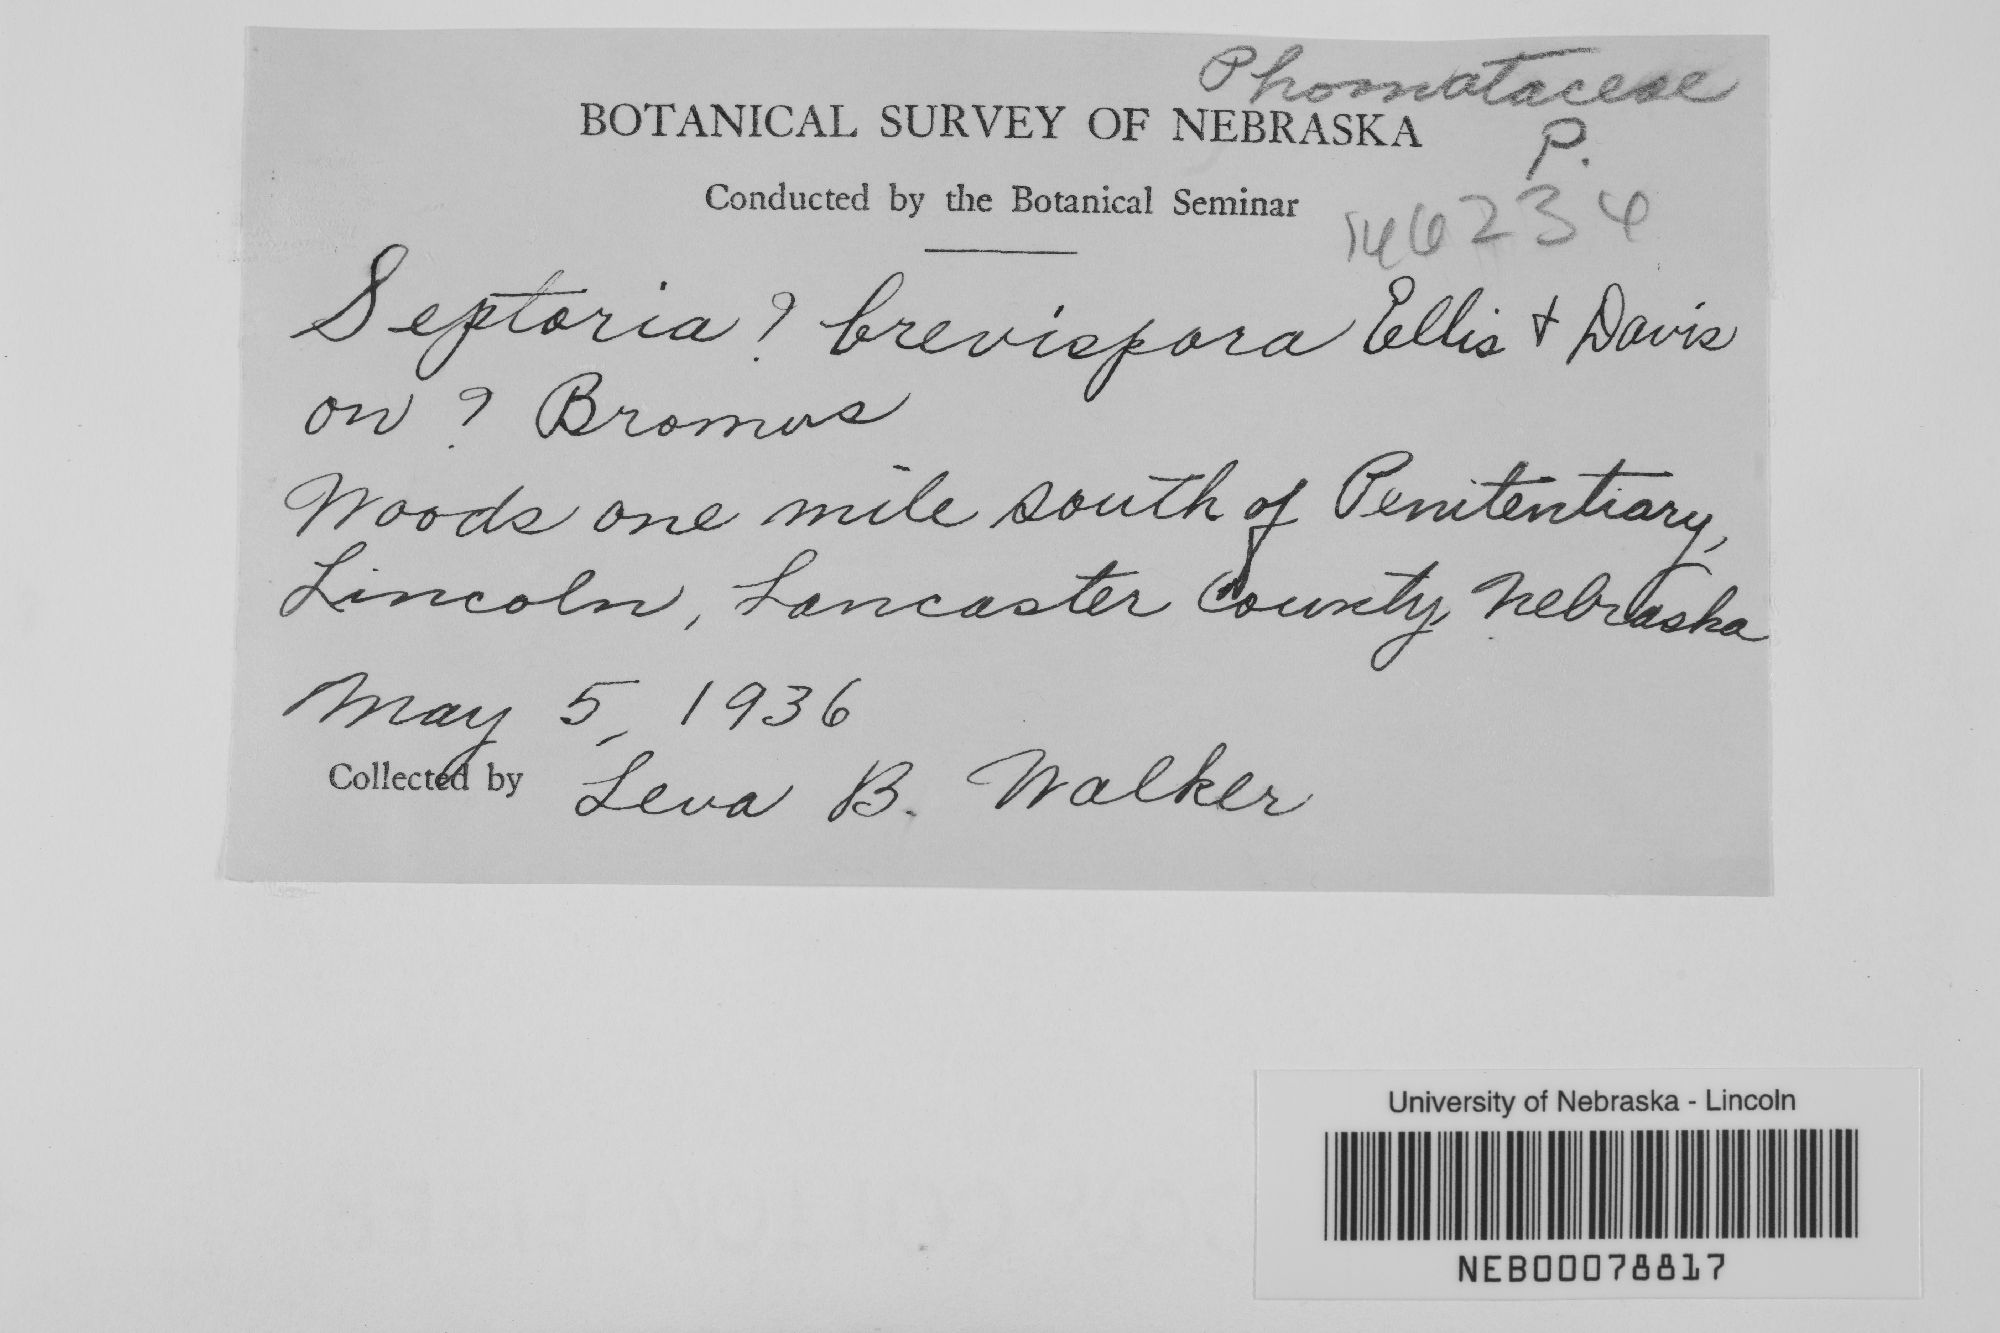 Phomataceae
BOTANICAL SURVEY OF NEBRASKA
P.
Conducted by the Botanical Seminar
146234
Septoria ? brevispora Ellis + Davis
on ? Bromus
Woods one mile south of Penitentiary,
Lincoln, Lancaster County, Nebraska
May 5, 1936
Collected by Leva B. Walker
University of Nebraska - Lincoln
NEB00078817